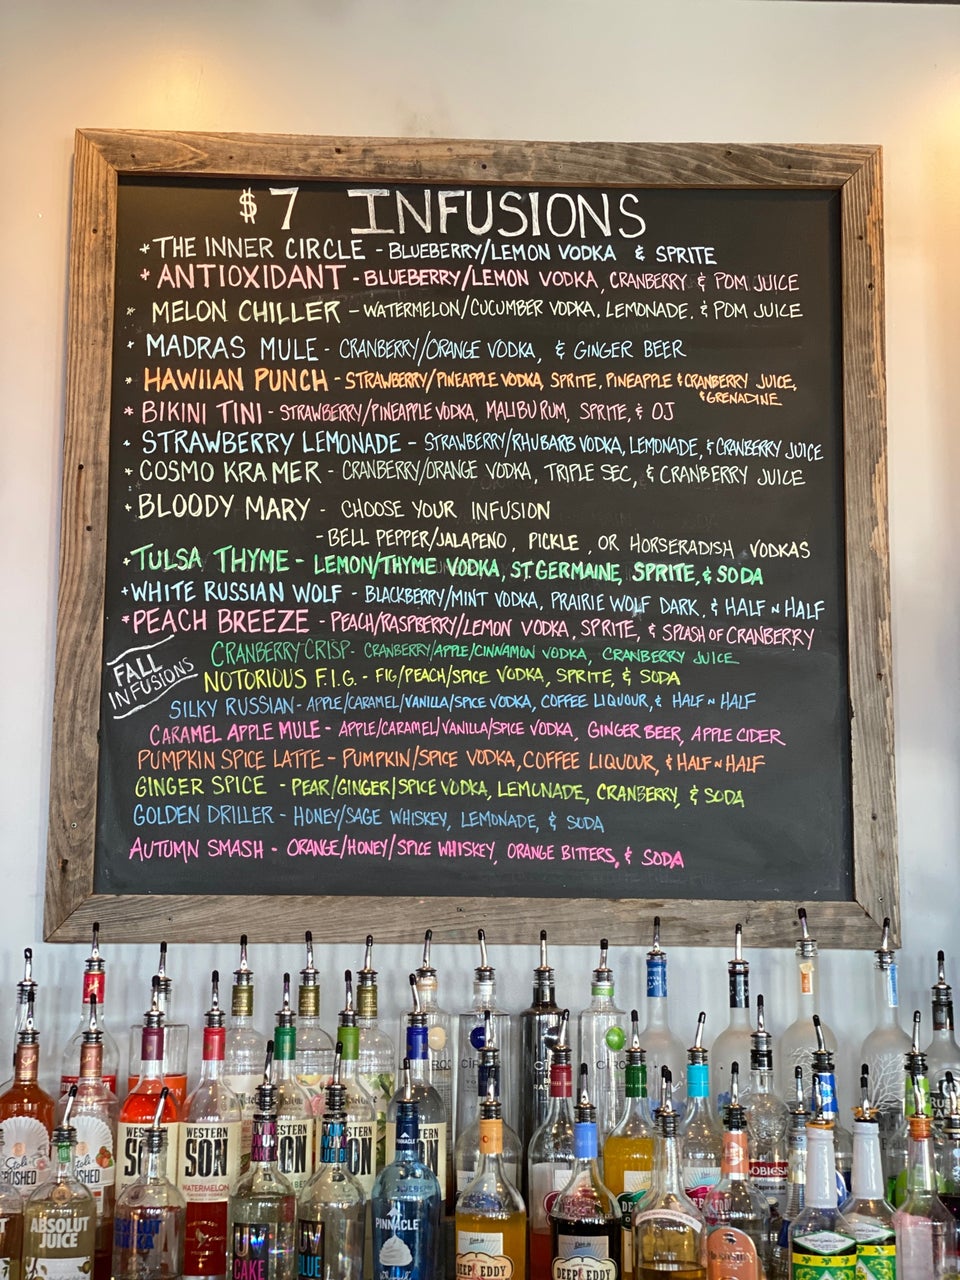 $7 INFUSIONS
* THE INNER CIRCLE - BLUEBERRY/LEMON VODKA & SPRITE
* ANTIOXIDANT - BLUEBERRY/LEMON VODKA, CRANBERRY & POM JUICE
* MELON CHILLER - WATERMELON/CUCUMBER VODKA, LEMONADE, & POM JUICE
* MADRAS MULE - CRANBERRY/ORANGE VODKA, & GINGER BEER
* HAWIIAN PUNCH - STRAWBERRY/PINEAPPLE VODKA, SPRITE, PINEAPPLE & CRANBERRY JUICE,
& GRENADINE
* BIKINI TINI - STRAWBERRY/PINEAPPLE VODKA, MALIBU RUM, SPRITE, & OJ
* STRAWBERRY LEMONADE - STRAWBERRY/RHUBARB VODKA, LEMONADE, & CRANBERRY JUICE
* COSMO KRAMER - CRANBERRY/ORANGE VODKA, TRIPLE SEC, & CRANBERRY JUICE
* BLOODY MARY - CHOOSE YOUR INFUSION
- BELL PEPPER/JALAPENO, PICKLE, OR HORSERADISH VODKAS
* TULSA THYME - LEMON/THYME VODKA, ST. GERMAINE, SPRITE, & SODA
* WHITE RUSSIAN WOLF - BLACKBERRY/MINT VODKA, PRAIRIE WOLF DARK, & HALF N HALF
* PEACH BREEZE - PEACH/RASPBERRY/LEMON VODKA, SPRITE, & SPLASH OF CRANBERRY
FALL
INFUSIONS
CRANBERRY CRISP - CRANBERRY/APPLE/CINNAMON VODKA, CRANBERRY JUICE
NOTORIOUS F.I.G. - FIG/PEACH/SPICE VODKA, SPRITE, & SODA
SILKY RUSSIAN - APPLE/CARAMEL/VANILLA/SPICE VODKA, COFFEE LIQUOUR, & HALF N HALF
CARAMEL APPLE MULE - APPLE/CARAMEL/VANILLA/SPICE VODKA, GINGER BEER, APPLE CIDER
PUMPKIN SPICE LATTE - PUMPKIN/SPICE VODKA, COFFEE LIQUOUR, & HALF N HALF
GINGER SPICE - PEAR/GINGER/SPICE VODKA, LEMONADE, CRANBERRY, & SODA
GOLDEN DRILLER - HONEY/SAGE WHISKEY, LEMONADE, & SODA
AUTUMN SMASH - ORANGE/HONEY/SPICE WHISKEY, ORANGE BITTERS, & SODA
WESTERN
SON
WATERMELON
Stoli
ABSOLUT
JUICE
UV
CAKE
UV
BLUE
PINNACLE
DEEP EDDY
DEEP EDDY